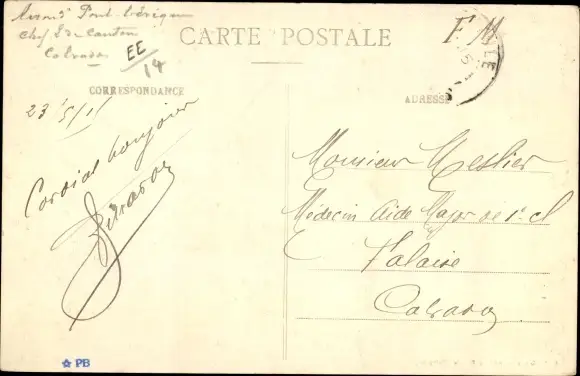 Pont-l'Evêque
Chef de Canton
Calvados
EE
14
CARTE POSTALE
F M
CORRESPONDANCE
ADRESSE
Cordial bonjour
Monsieur Meslier
Médecin Aide Major de 1e cl
Falaise
Calvados
PB